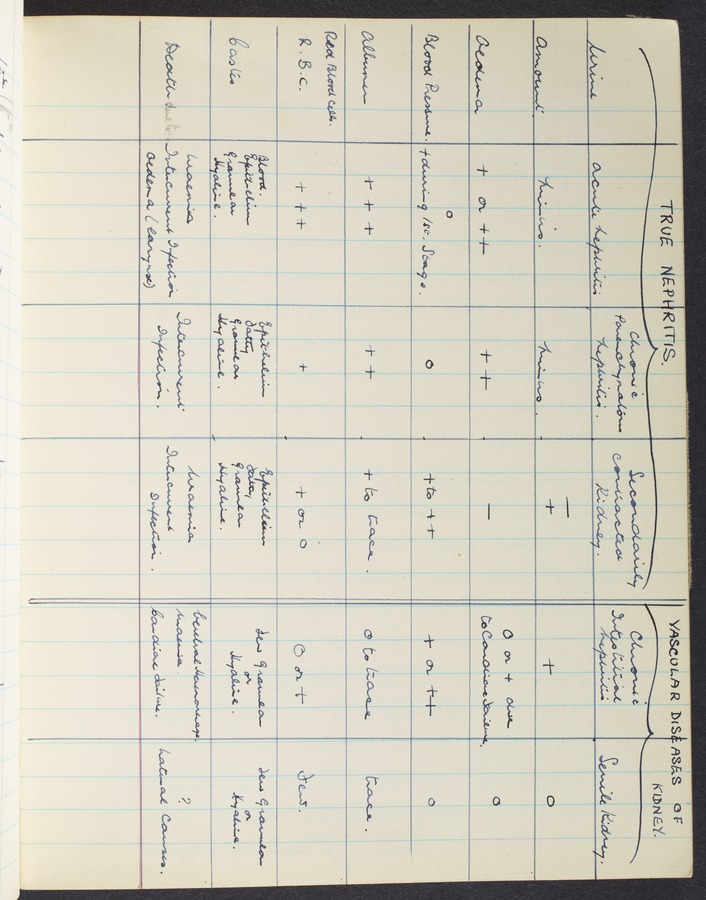 TRUE NEPHRITIS.
VASCULAR DISEASES OF
KIDNEY.
Urine
Acute Nephritis
Chronic
Parenchymatous
Nephritis.
Secondarily
contracted
Kidney.
Chronic
Interstitial
Nephritis
Senile Kidney.
Amount.
Minus.
Minus.
—
+
+
O
Oedema
+ or ++
++
—
O or + due
to Cardiac Failure.
O
Blood Pressure.
O
+ during 1st. Stage.
O
+ to ++
+ or ++
O
Albumen
+++
++
+ to trace.
O to trace
trace.
Red Blood Cells.
R.B.C.
+++
+
+ or O
O or +
Few.
Casts
Blood.
Epithelium
Granular
Hyaline.
Epithelium
Fatty
Granular
Hyaline.
Epithelium
Fatty
Granular
Hyaline.
Few Granular
or
Hyaline.
Few Granular
or
Hyaline.
Death due to:
Uraemia
Intercurrent Infection
Oedema (Larynx)
Intercurrent
Infection.
Uraemia
Intercurrent
Infection.
Cerebral Haemorrhage.
Uraemia.
Cardiac Failure.
?
Natural Causes.